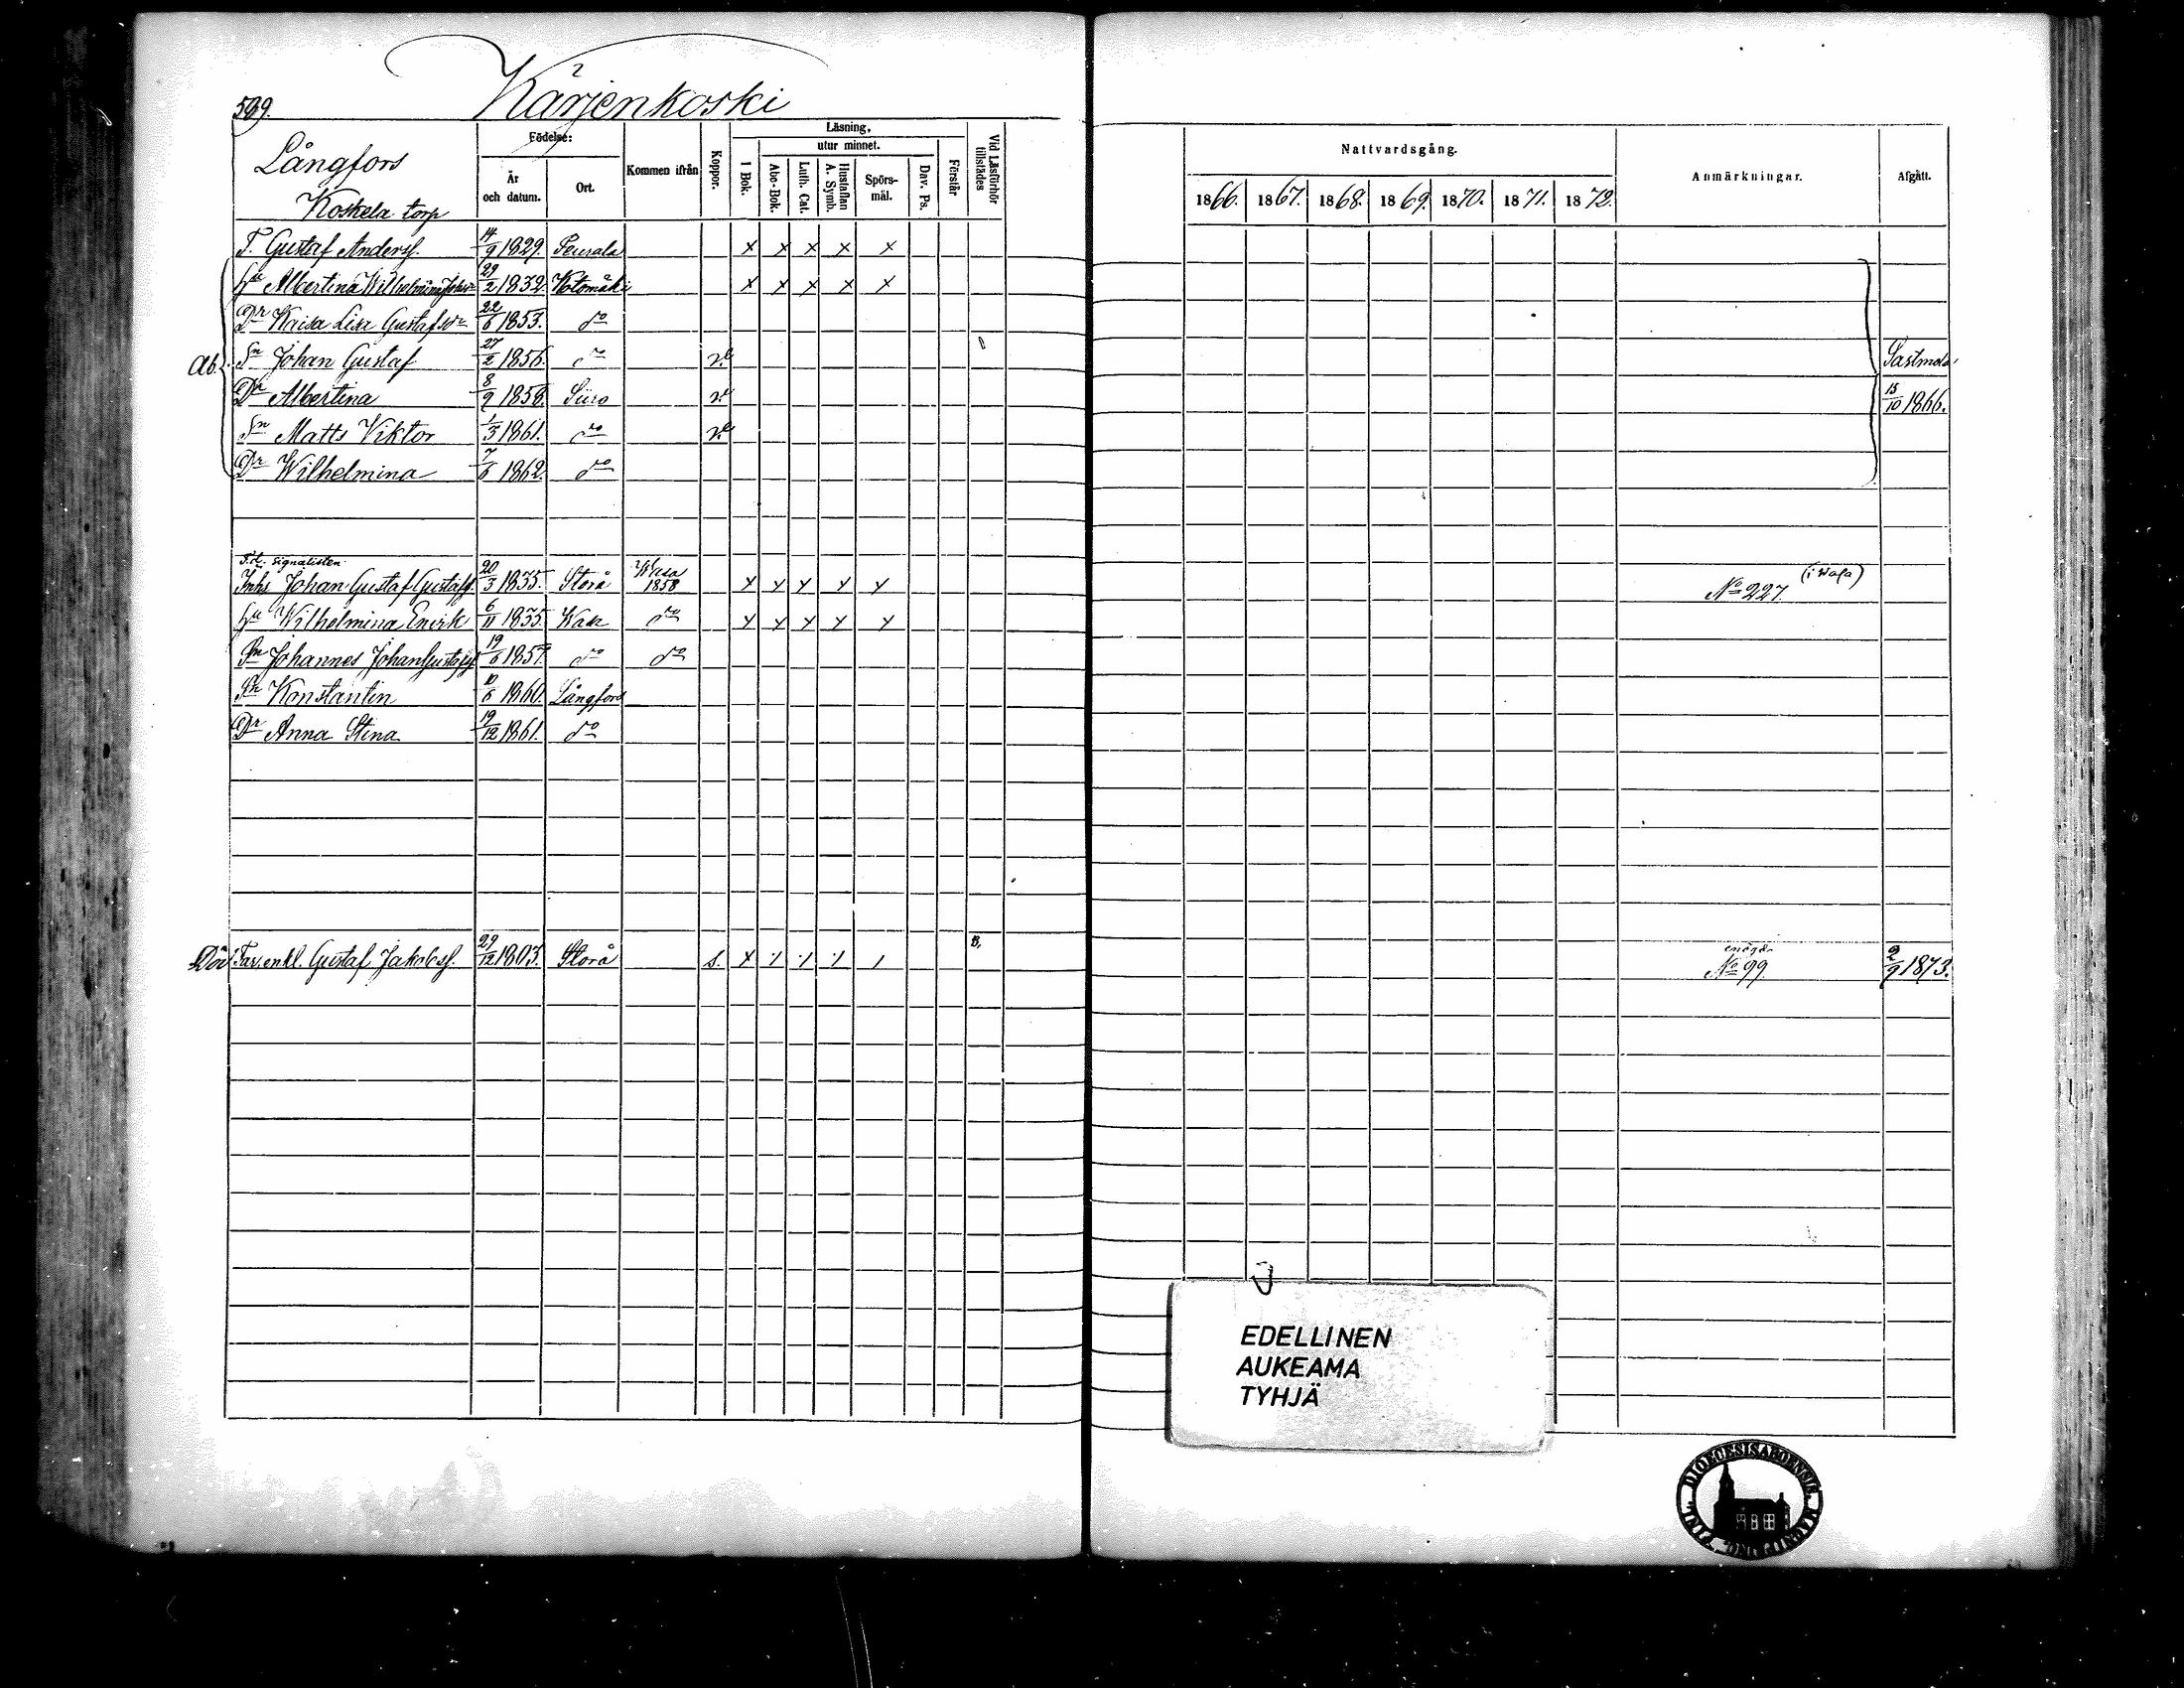 599.
Kärjenkoski
Långfors
Koskela torp
Födelse:
År och datum.
Ort.
Kommen ifrån
Koppor.
Läsning,
utur minnet.
I Bok.
Abc-Bok.
Luth. Cat.
Hustaflan A. Symb.
Spörs-mål.
Dav. Ps.
Förstår
Vid Läsförhör tillstädes
Nattvardsgång.
1866. 1867. 1868. 1869. 1870. 1871. 1872.
Anmärkningar.
Afgått.
T. Gustaf Andersf. 14/9 1829. Peurala x x x x x
Hu Albertina Wilhelmina 29/2 1832 Kotomäki x x x x x
Dr Kaisa Lisa Gustafsdr 22/6 1853. do
Ab. Sn Johan Gustaf 27/2 1856. do v. Sastmola
Dr Albertina 8/9 1858. Siiro v. 15/10 1866.
Sn Matts Viktor 1/3 1861. do v.
Dr Wilhelmina 7/6 1862. do
F.d. signalisten
Inhs Johan Gustaf Gustafsf. 20/3 1835. Storå Wasa 1858 x x x x x No 227. (i Wasa)
Hu Wilhelmina Enrik 6/11 1835. Wasa do x x x x x
Sn Johannes Johan Gustafsf 19/6 1857. do do
Sn Konstantin 10/6 1860. Långfors
Dr Anna Stina 19/12 1861. do
Död Far. enkl. Gustaf Jakobsf. 29/12 1803. Storå s. B. No 99. 2/9 1873.
EDELLINEN
AUKEAMA
TYHJÄ
DIOECESIS ABOENSIS